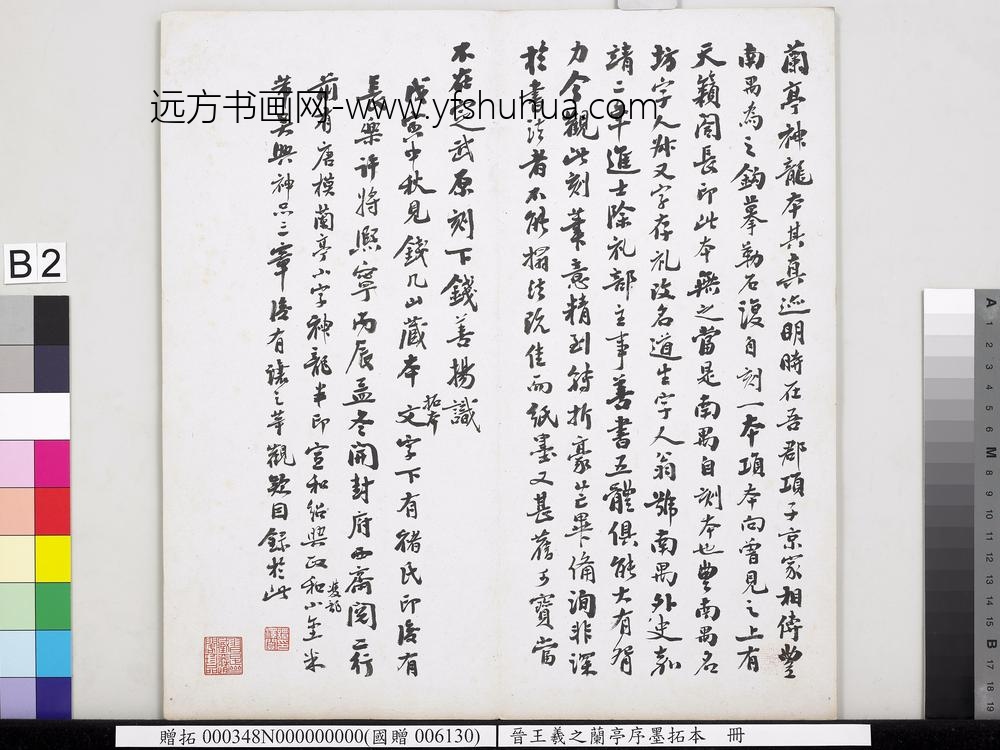 蘭亭神龍本其真迹明時在吾郡項子京家相傳豐
南禺為之鈎摹勒石復自刻一本項本向曾見之上有
天籟閣長印此本無之當是南禺自刻本也豐南禺名
坊字人叔又字存礼改名道生字人翁號南禺外史嘉
靖二年進士除礼部主事善書五體俱能大有腎
力今觀此刻筆意精到轉折豪芒畢備洵非深
於書法者不能搨法既佳而紙墨又甚舊可寶當
不在定武原刻下錢善揚識
戊寅中秋見錢几山藏本拓本文字下有褚氏印後有
長樂許將熙寧丙辰孟冬開封府西齋閱二行
前有唐模蘭亭小字神龍半印宣和紹興政和小璽雙龍米
芾吳興神品三章後有諸之華觀款目錄於此
远方书画网-www.yfshuhua.com
B2
A 1 2 3 4 5 6 M 8 9 10 11 12 13 14 15 B 17 18 19
贈拓 000348N000000000(國贈 006130) 晉王羲之蘭亭序墨拓本 冊